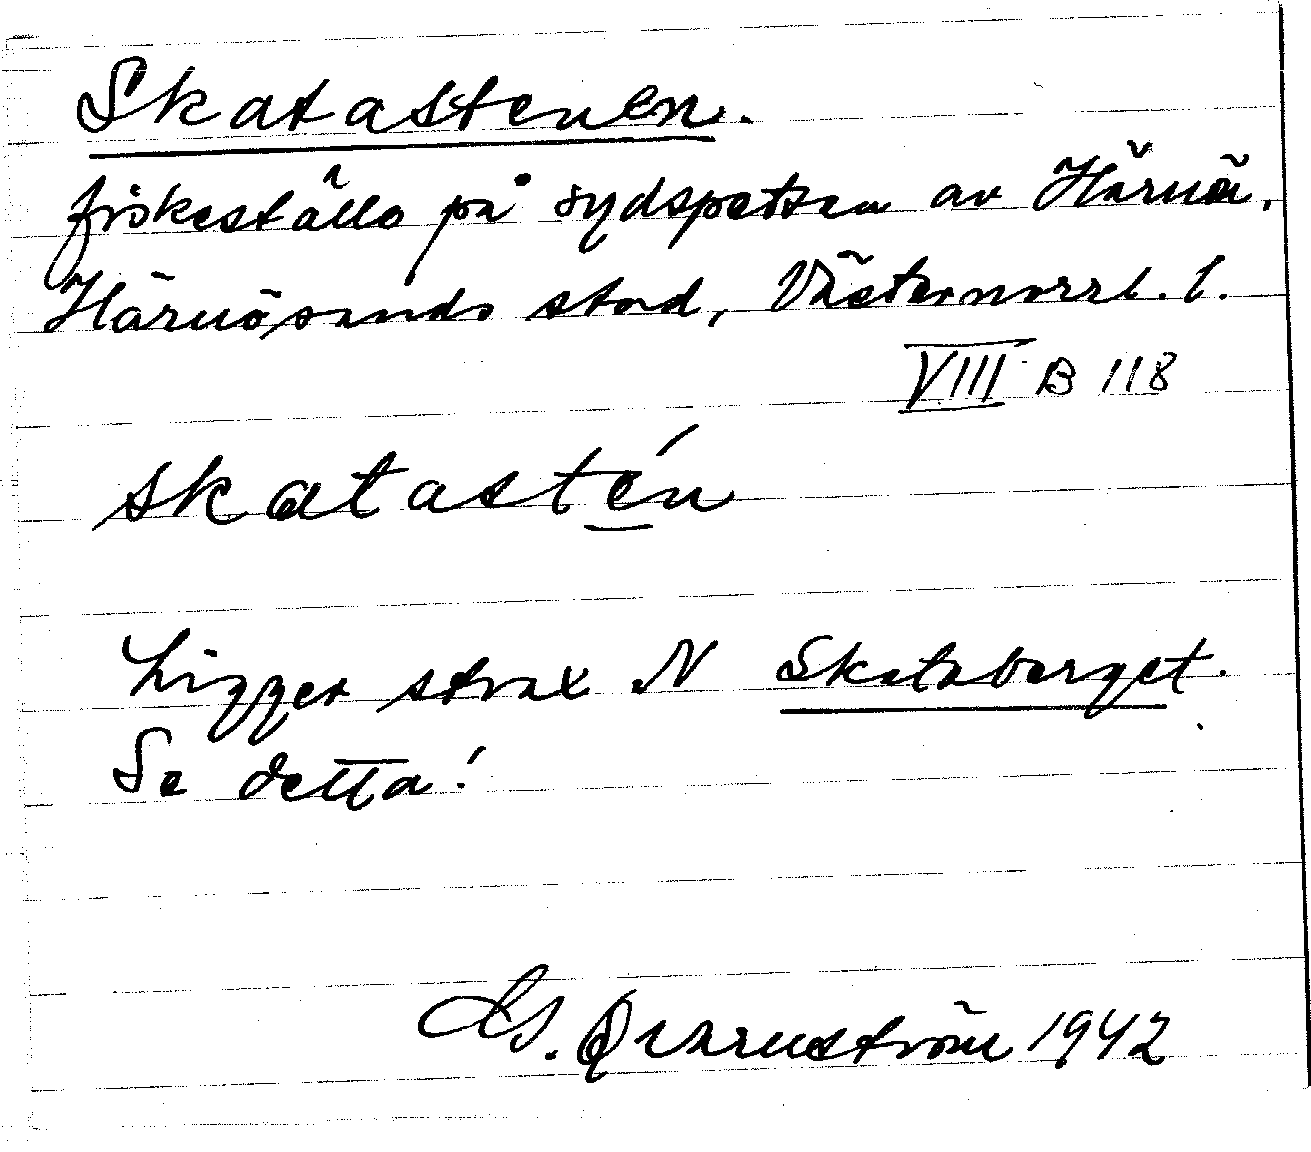 Skatastenen.
fiskeställe på sydspetsen av Härnön,
Härnösands stad, Västernorrl. l.
VIII B 118
skatastén
Ligger strax N Skataberget.
Se detta!
Qvarnström 1942